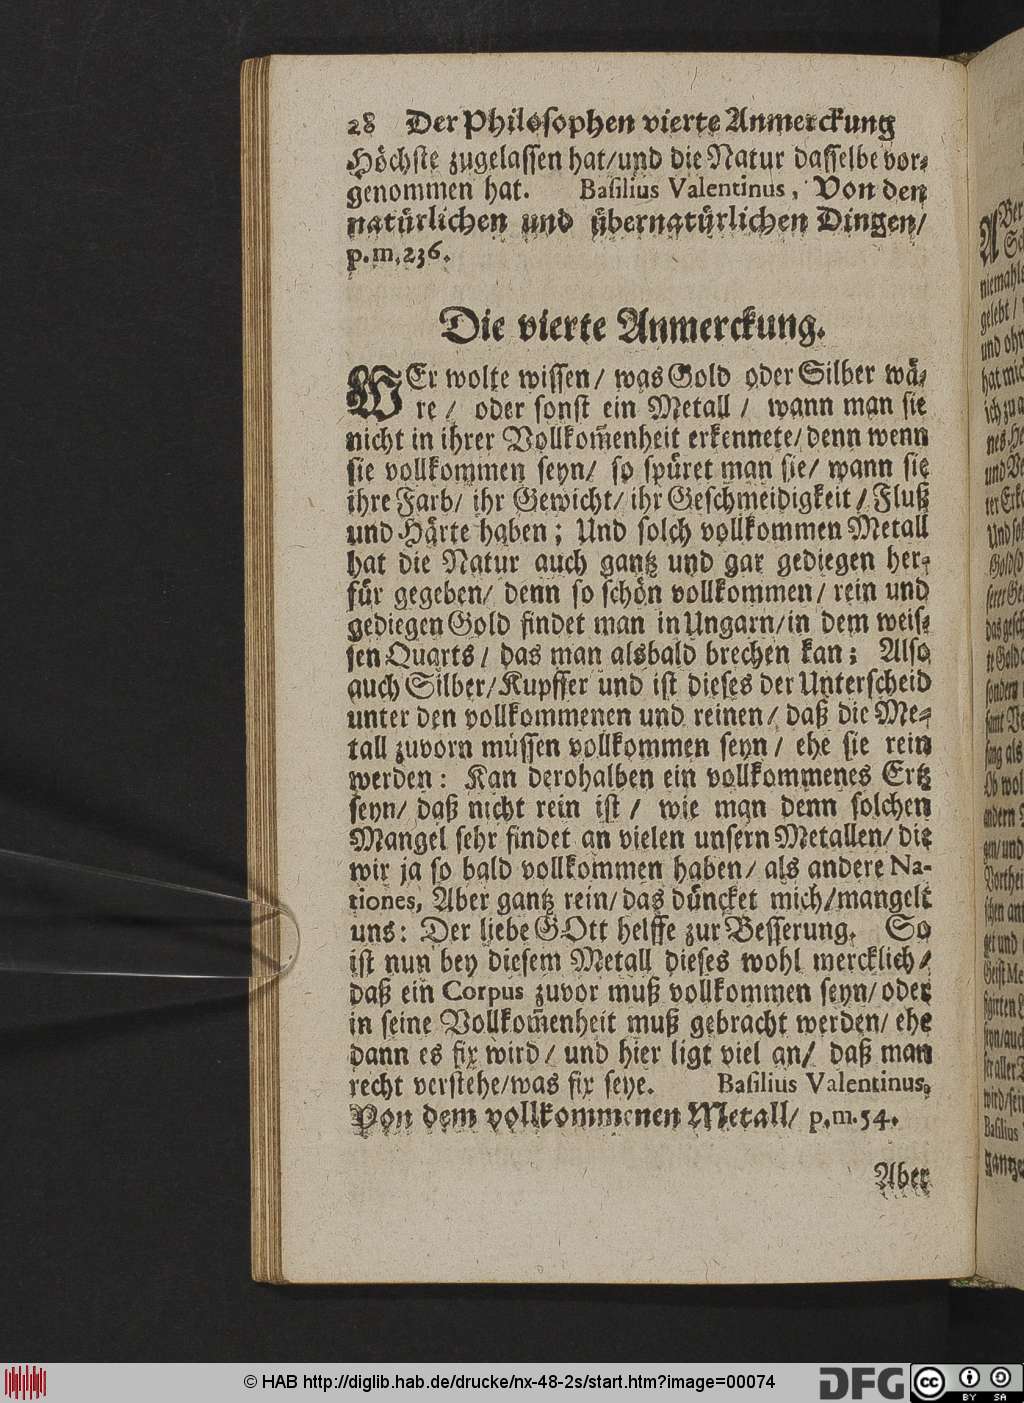 28 Der Philosophen vierte Anmerckung
Höchste zugelassen hat/und die Natur dasselbe vor-
genommen hat. Basilius Valentinus, Von den
natürlichen und übernatürlichen Dingen/
p.m.236.
Die vierte Anmerckung.
WEr wolte wissen/ was Gold oder Silber wä-
re/ oder sonst ein Metall/ wann man sie
nicht in ihrer Vollkom̃enheit erkennete/denn wenn
sie vollkommen seyn/ so spüret man sie/ wann sie
ihre Farb/ ihr Gewicht/ ihr Geschmeidigkeit/ Fluß
und Härte haben; Und solch vollkommen Metall
hat die Natur auch gantz und gar gediegen her-
für gegeben/ denn so schön vollkommen/ rein und
gediegen Gold findet man in Ungarn/in dem weis-
sen Quarts/ das man alsbald brechen kan; Also
auch Silber/Kupffer und ist dieses der Unterscheid
unter den vollkommenen und reinen/ daß die Me-
tall zuvorn müssen vollkommen seyn/ ehe sie rein
werden: Kan derohalben ein vollkommenes Ertz
seyn/ daß nicht rein ist/ wie man denn solchen
Mangel sehr findet an vielen unsern Metallen/ die
wir ja so bald vollkommen haben/ als andere Na-
tiones, Aber gantz rein/ das düncket mich/mangelt
uns: Der liebe GOtt helffe zur Besserung. So
ist nun bey diesem Metall dieses wohl mercklich/
daß ein Corpus zuvor muß vollkommen seyn/ oder
in seine Vollkom̃enheit muß gebracht werden/ ehe
dann es fix wird/ und hier ligt viel an/ daß man
recht verstehe/was fix seye. Basilius Valentinus,
Von dem vollkommenen Metall/ p.m.54.
Aber
niemahls
gelebt/
und ohn
hat mich
ich zu a
als
Ob wol
andern
gen/ und
Vortheil
get und
Geist
wird/
Basilius
© HAB http://diglib.hab.de/drucke/nx-48-2s/start.htm?image=00074
DFG
cc BY SA